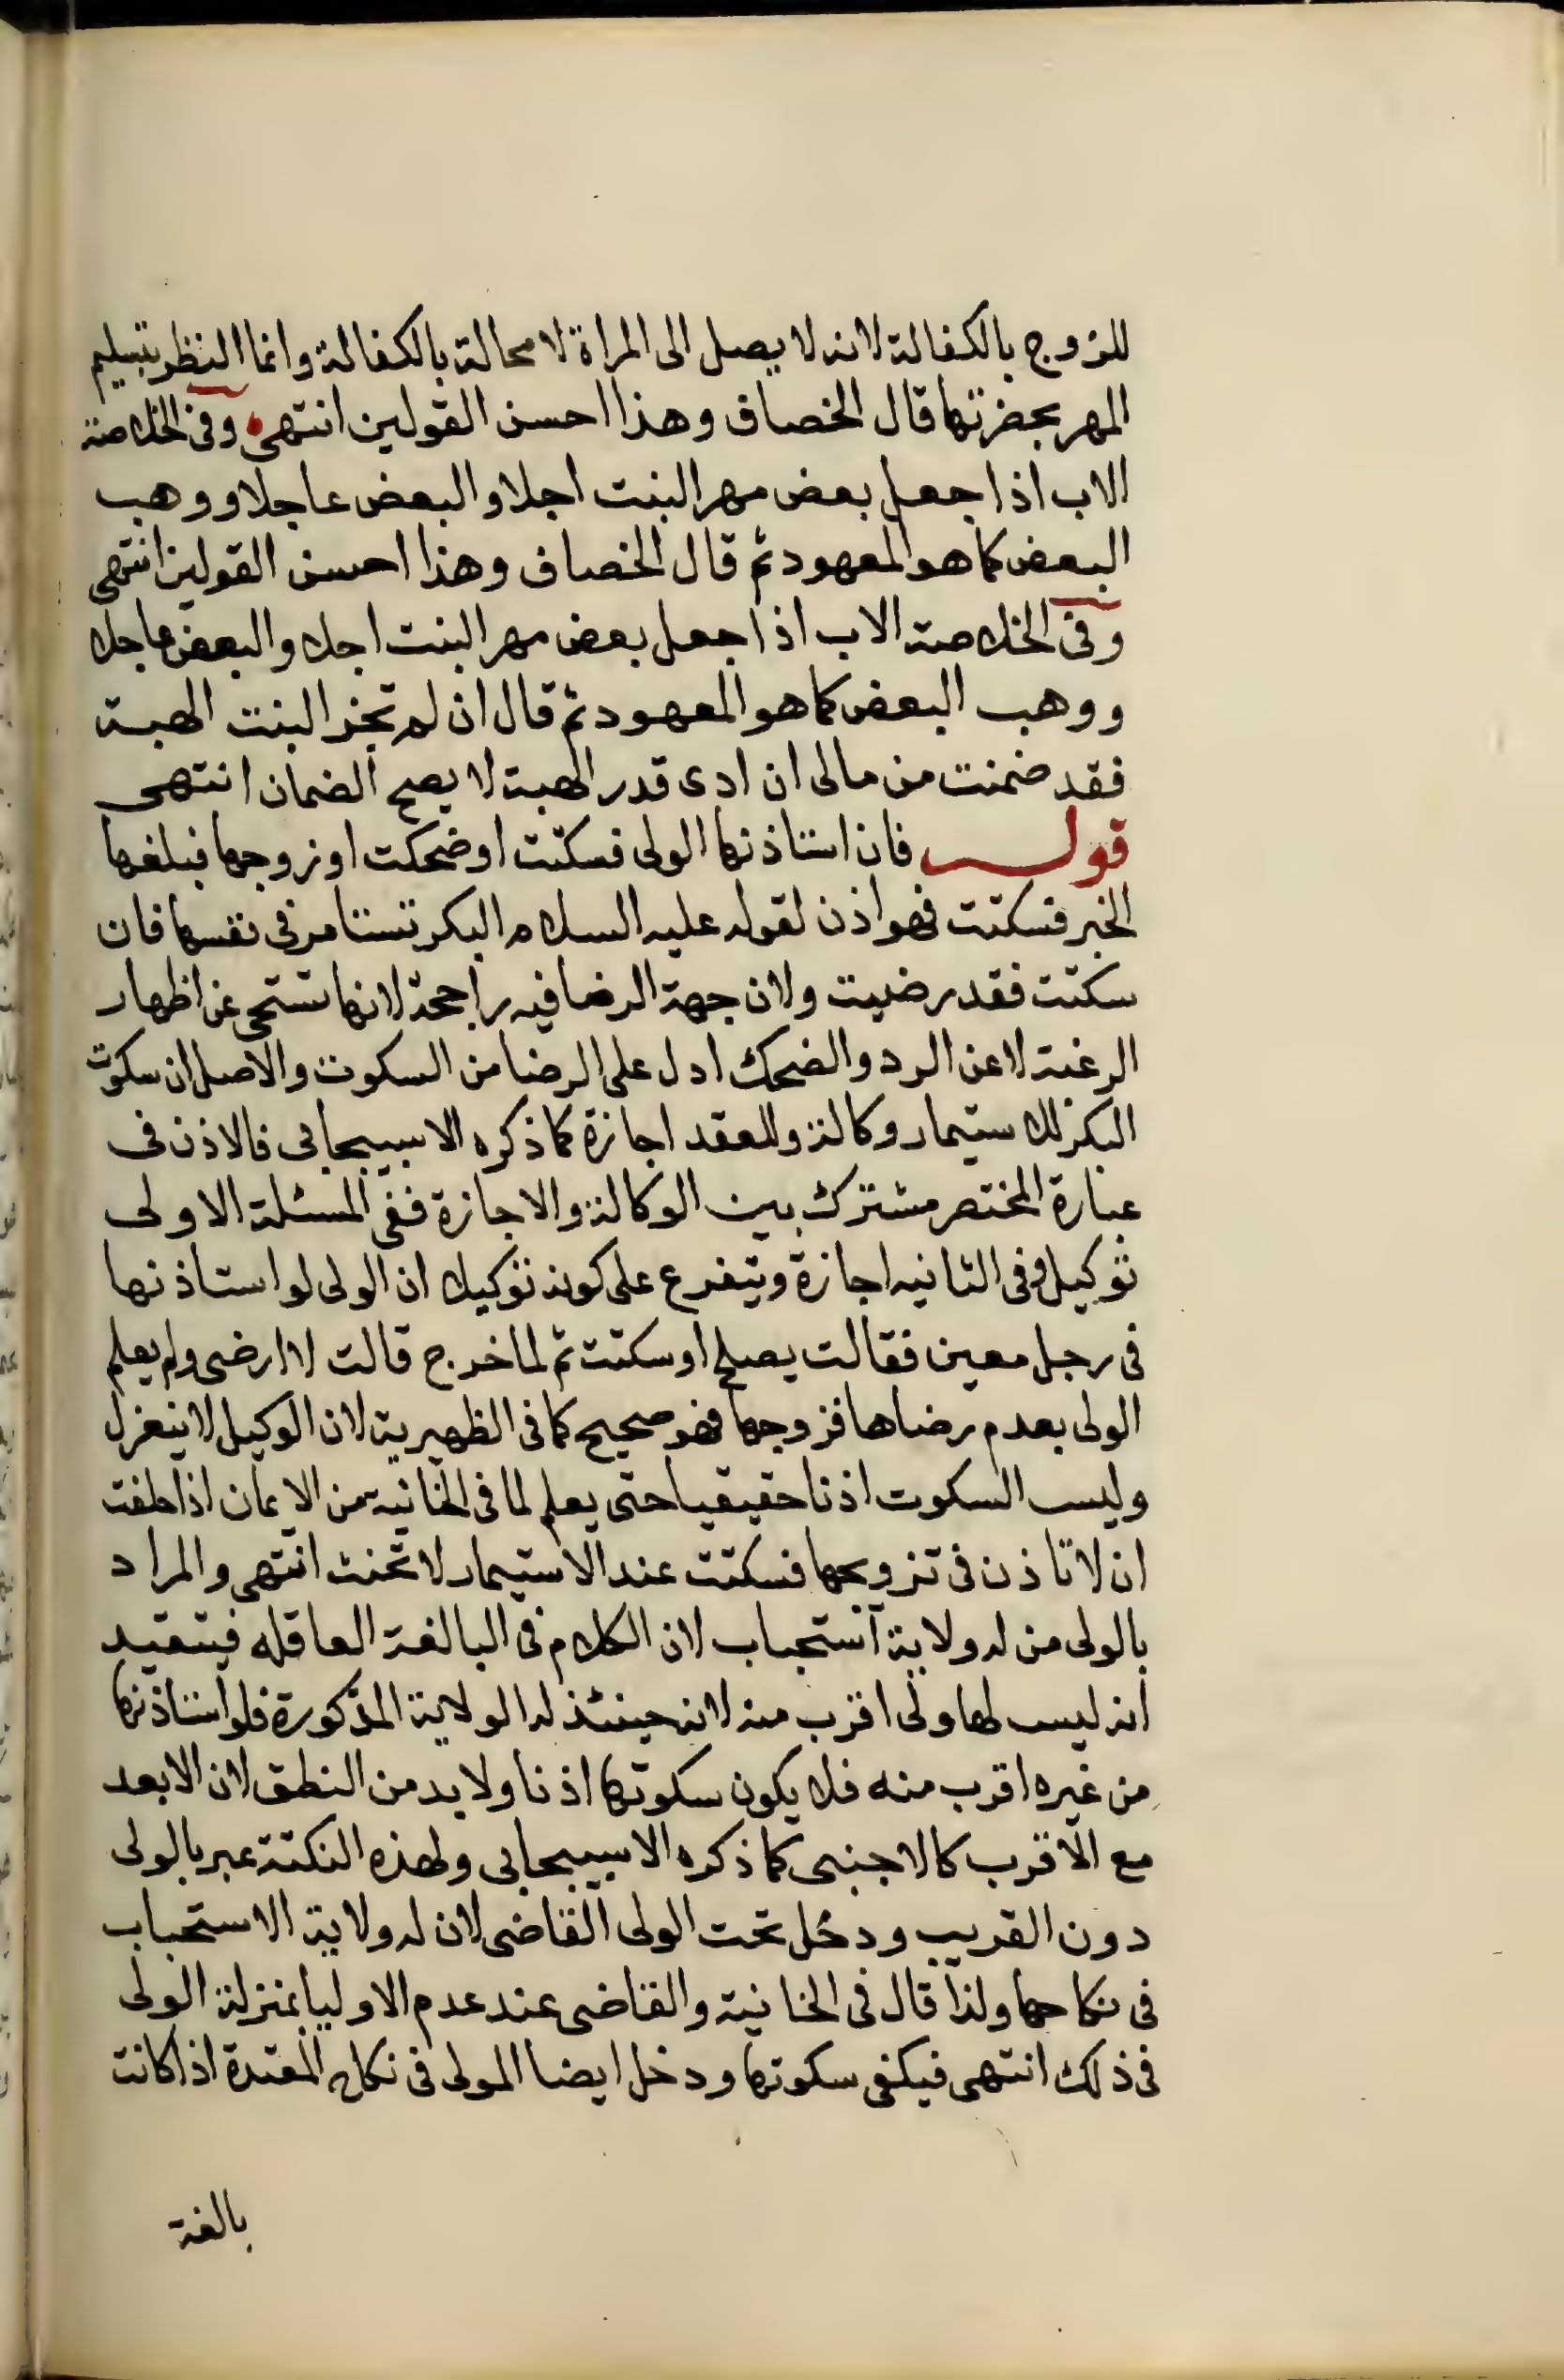 للزوج بالكفالة لانه لا يصل الى المراة لا محالة بالكفالة وانما النظر بتسليم
المهر بحضرتها قال الخصاف وهذا احسن القولين انتهى وفى الخلاصة
الاب اذا جعل بعض مهر البنت اجلا والبعض عاجلا ووهب
البعض كما هو المعهود ثم قال الخصاف وهذا احسن القولين انتهى
وفى الخلاصة الاب اذا جعل بعض مهر البنت اجلا والبعض عاجلا
ووهب البعض كما هو المعهود ثم قال ان لم تجز البنت الهبة
فقد ضمنت من مالى ان ادى قدر الهبة لا يصح الضمان انتهى
قوله فان استاذنها الولى فسكتت او ضحكت او زوجها فبلغها
الخبر فسكتت فهو اذن لقوله عليه السلام البكر تستامر فى نفسها فان
سكتت فقد رضيت ولان جهة الرضا فيه راجحة لانها تستحى عن اظهار
الرغبة لا عن الرد والضحك ادل على الرضا من السكوت والاصل ان سكوت
البكر للاستيمار وكالة وللعقد اجازة كما ذكره الاسبيجابى فالاذن فى
عبارة المختصر مشترك بين الوكالة والاجازة ففى المسئلة الاولى
توكيل وفى الثانيه اجازة ويتفرع على كونه توكيلا ان الولى لو استاذنها
فى رجل معين فقالت يصلح او سكتت ثم لما خرج قالت لا ارضى ولم يعلم
الولى بعدم رضاها فزوجها فهو صحيح كما فى الظهيرية لان الوكيل لا ينعزل
وليس السكوت اذنا حقيقيا حتى يعلم لما فى الخانيه من الايمان اذا حلفت
ان لا تاذن فى تزويجها فسكتت عند الاستيمار لا تحنث انتهى والمراد
بالولى من له ولاية استحباب لان الكلام فى البالغة العاقله فيتقيد
انه ليس لها ولى اقرب منه لانه حينئذ له الولاية المذكورة فلو استاذنها
من غيره اقرب منه فلا يكون سكوتها اذنا ولا بد من النطق لان الابعد
مع الاقرب كالاجنبى كما ذكره الاسبيجابى ولهذه النكتة عبر بالولى
دون القريب ودخل تحت الولى القاضى لان له ولاية الاستحباب
فى نكاحها ولذا قال فى الخانية والقاضى عند عدم الاوليا بمنزلة الولى
فى ذلك انتهى فيكفى سكوتها ودخل ايضا المولى فى نكاح المعتدة اذا كانت
بالغة